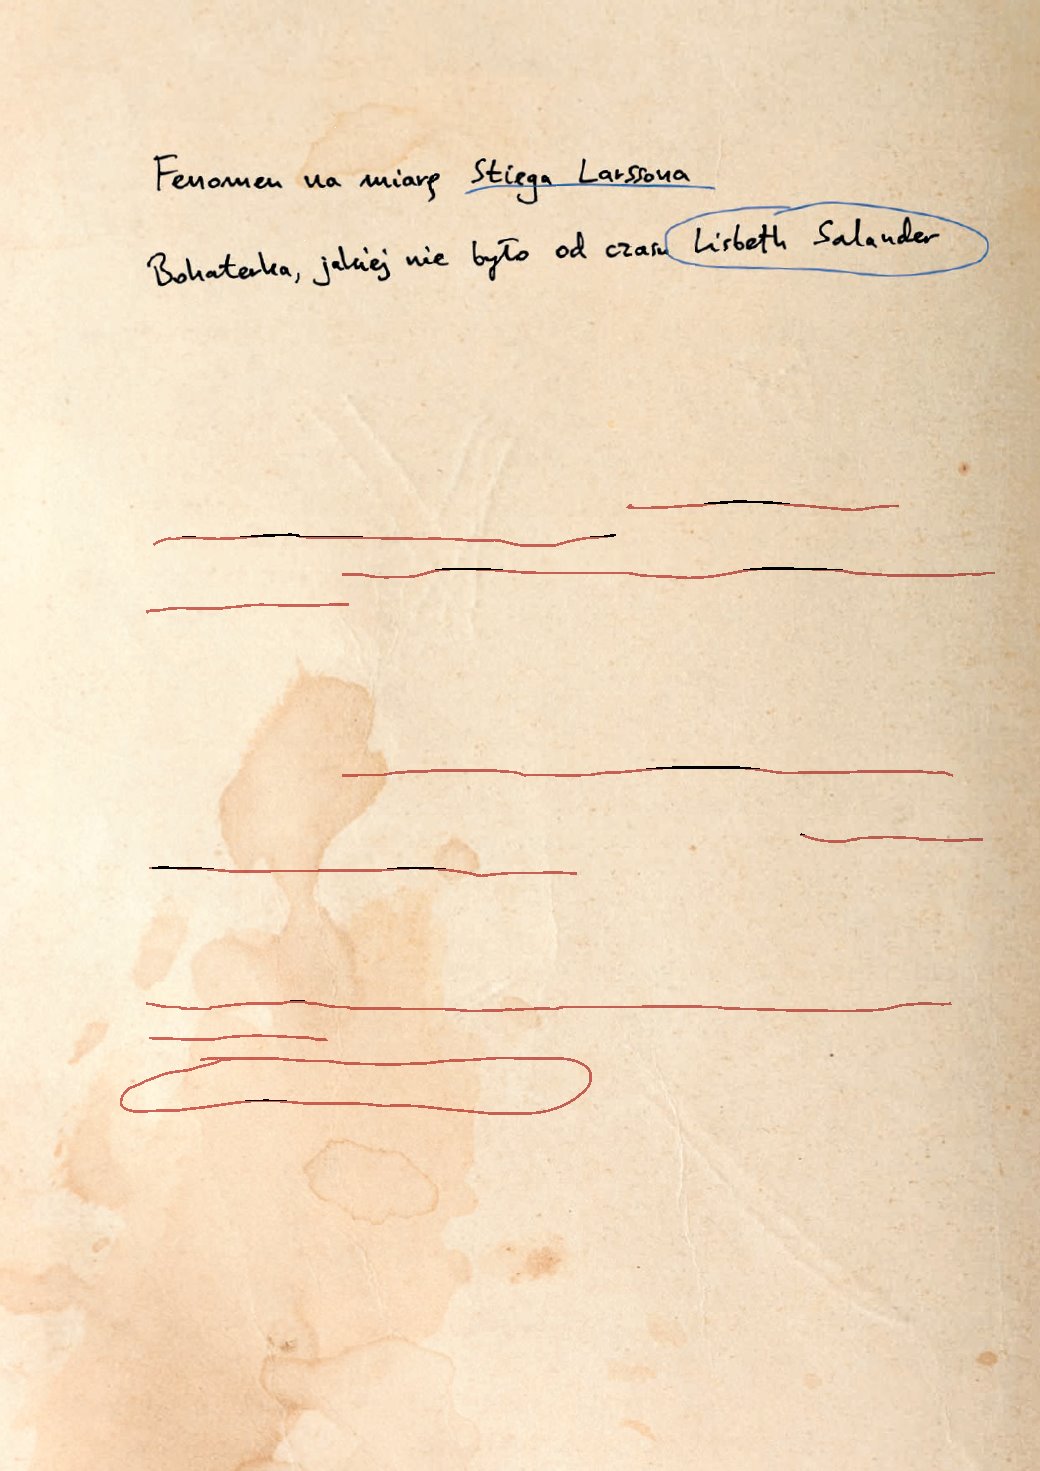 Fenomen na miarę Stiega Larssona
Bohaterka, jakiej nie było od czasu Lisbeth Salander